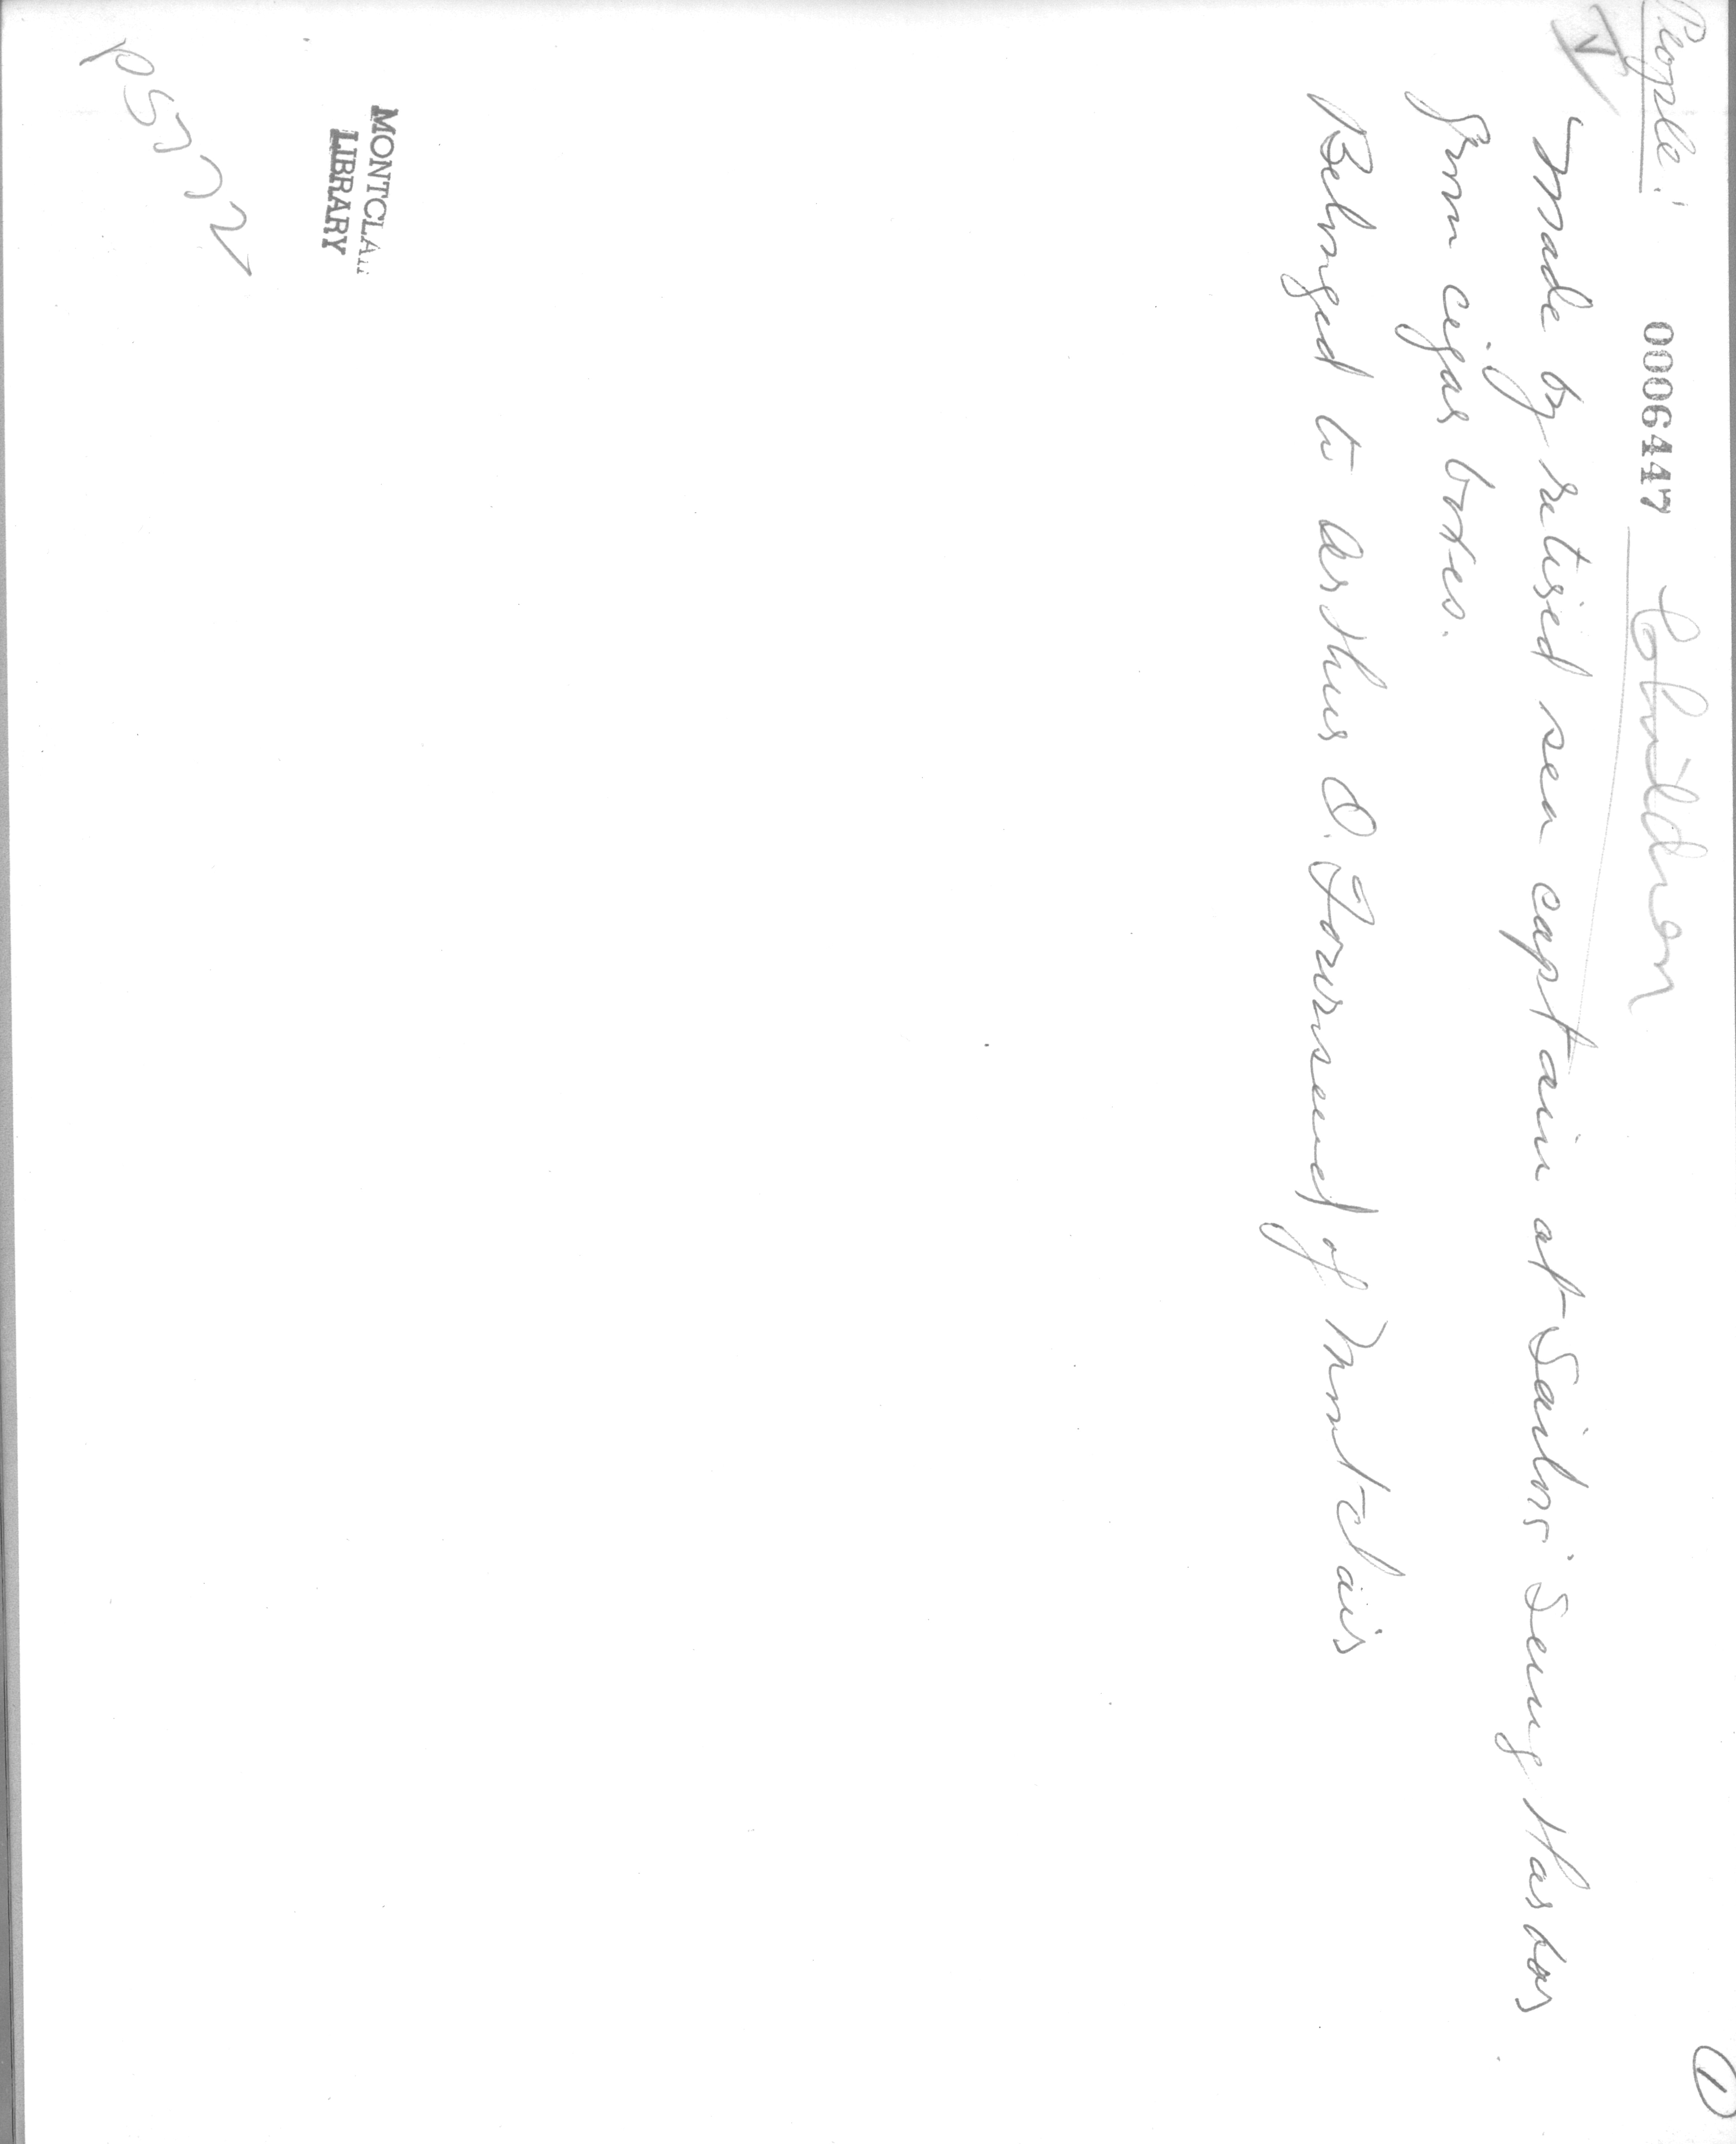 People: 0006447 Children
①
V
Made by retired sea captain at Sailors' Snug Harbor
from cigar boxes.
Belonged to Arthur O. Townsend of Montclair
MONTCLAIR
LIBRARY